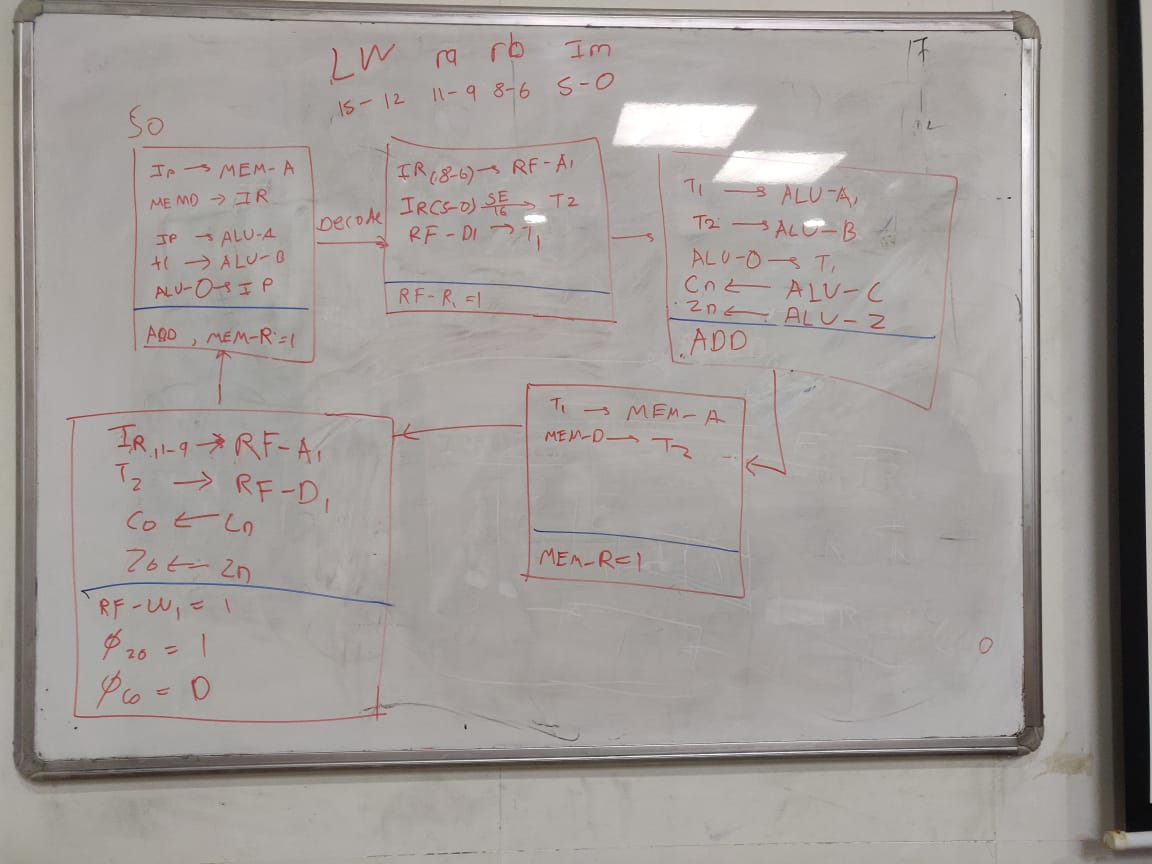 LW ra rb Im
15-12 11-9 8-6 5-0
17
S0
IP → MEM-A
MEMD → IR
IP → ALU-A
+1 → ALU-B
ALU-O → IP
ADD, MEM-R=1
DECODE
IR(8-6) → RF-A1
IR(5-0) SE/16 → T2
RF-D1 → T1
RF-R1=1
T1 → ALU-A1
T2 → ALU-B
ALU-O → T1
Cn ← ALU-C
Zn ← ALU-Z
ADD
T1 → MEM-A
MEM-D → T2
MEM-R=1
IR 11-9 → RF-A1
T2 → RF-D1
Co ← Cn
Zo ← Zn
RF-W1 = 1
φzo = 1
φco = 0
0